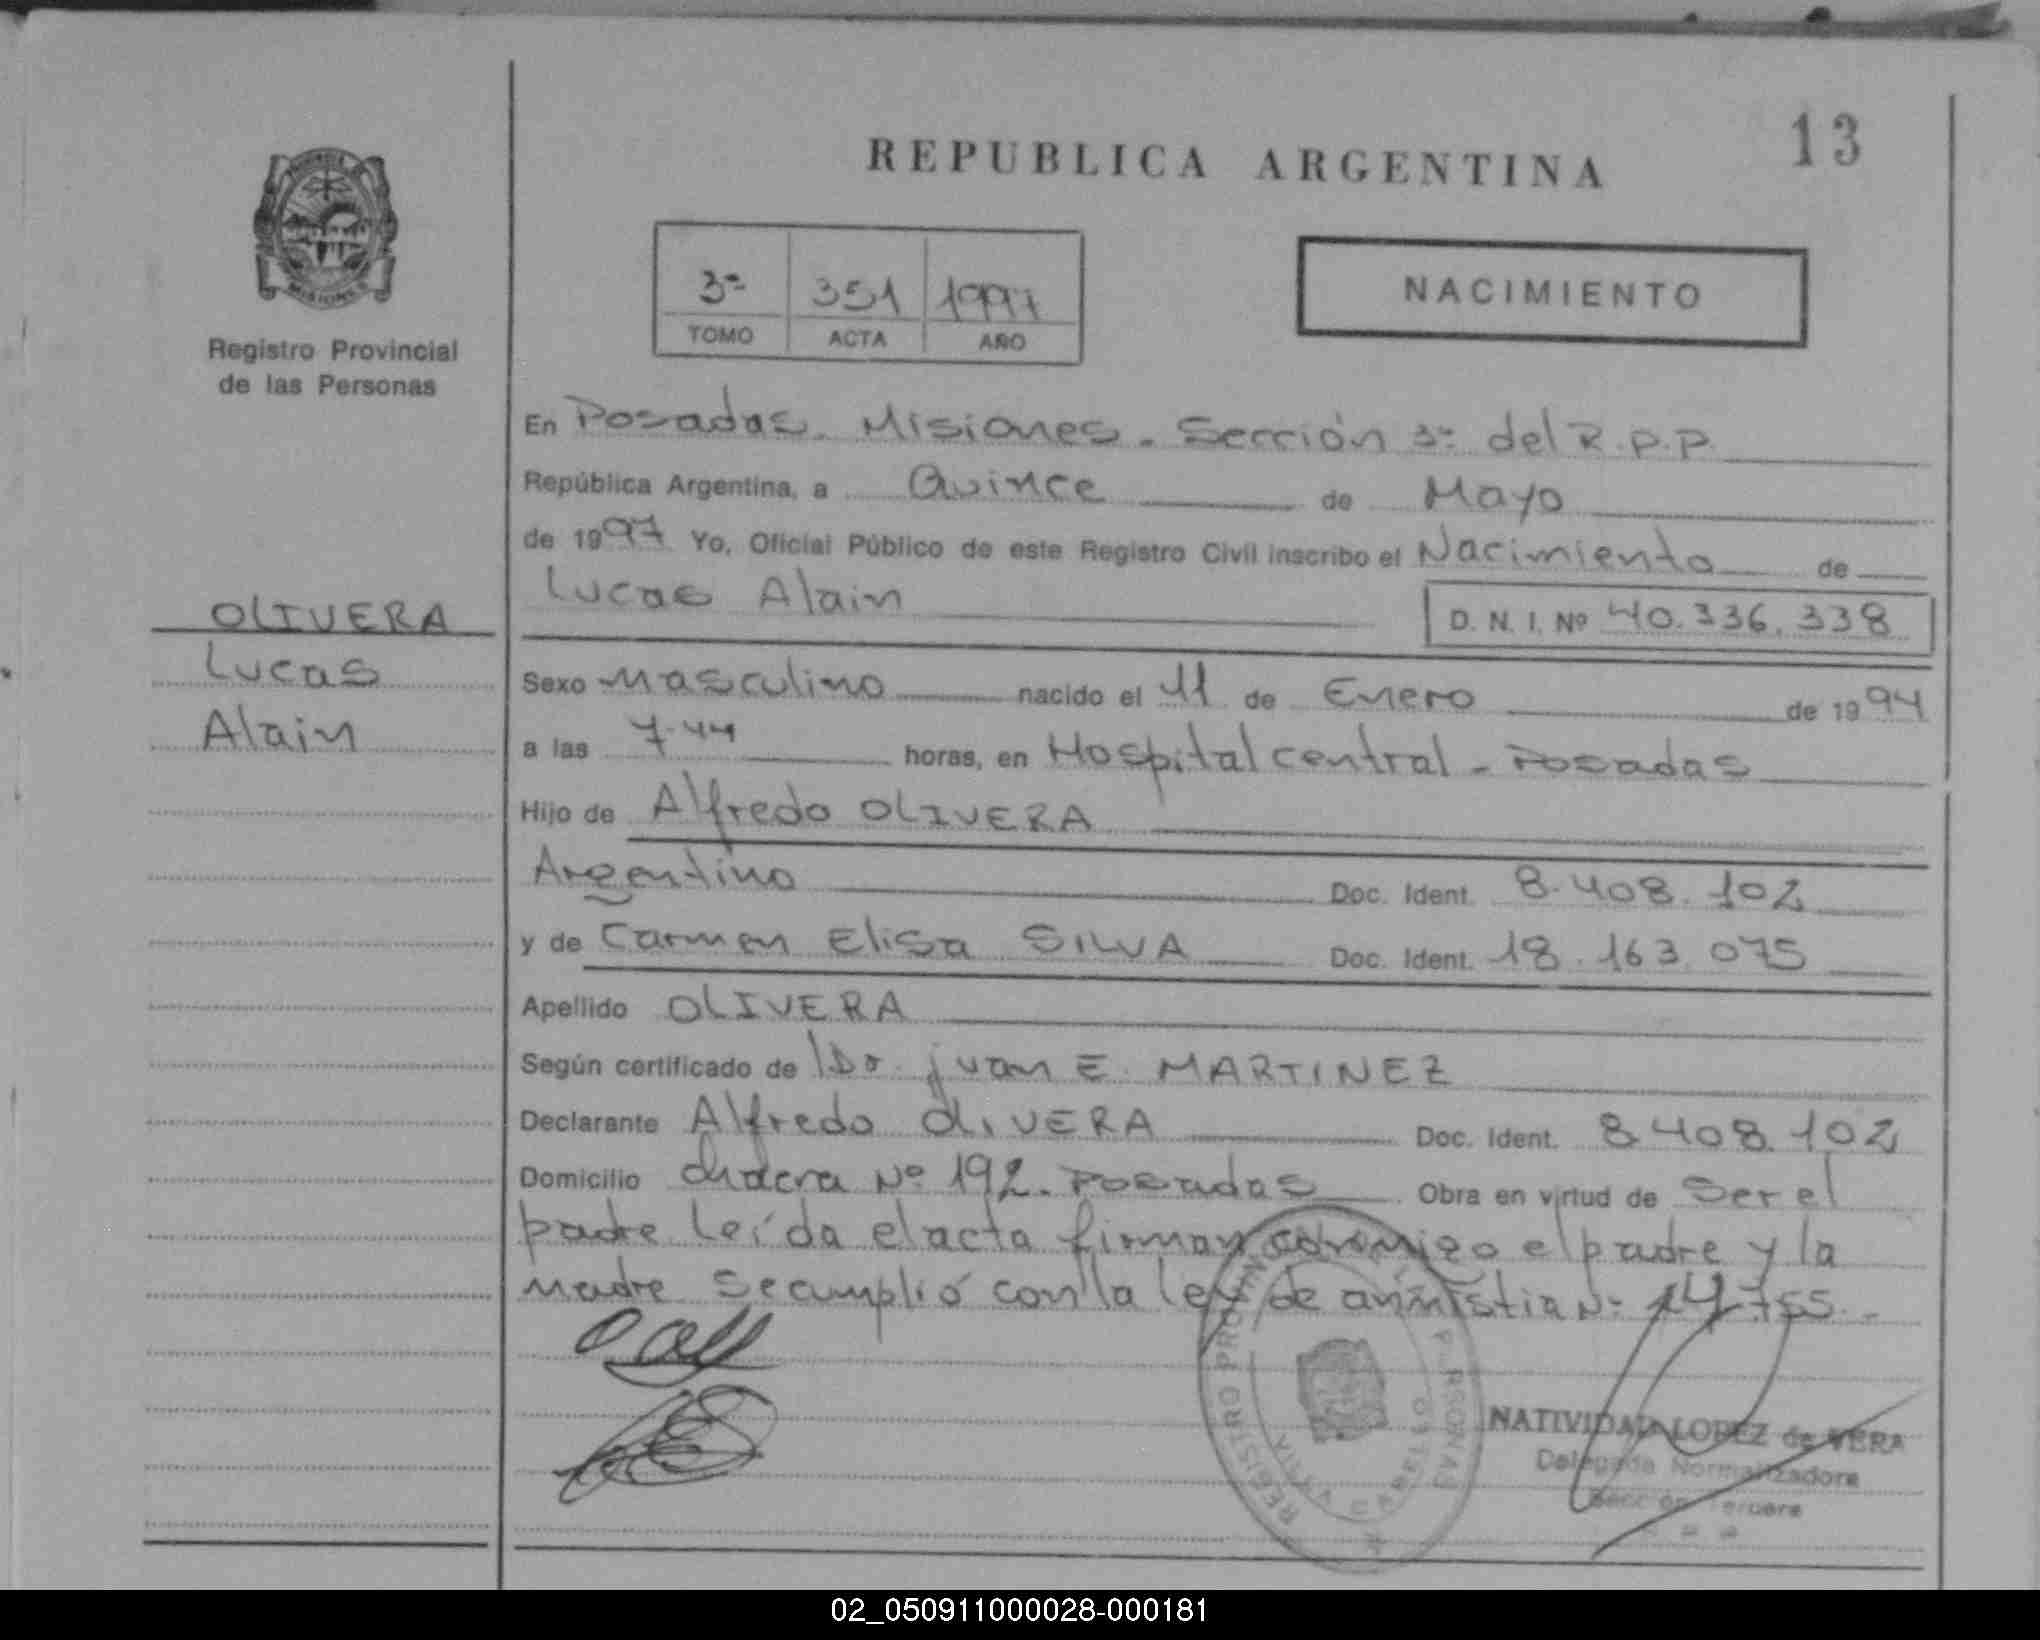 13
REPUBLICA ARGENTINA
3ª 351 1997
TOMO ACTA AÑO
NACIMIENTO
MISIONES
Registro Provincial
de las Personas
En Posadas. Misiones. Sección 3ª del R.P.P.
República Argentina, a Quince de Mayo
de 1997 Yo, Oficial Público de este Registro Civil inscribo el Nacimiento de
Lucas Alain D. N. I. Nº 40.336.338
OLIVERA
Lucas
Alain
Sexo Masculino nacido el 11 de Enero de 1994
a las 7.44 horas, en Hospital central - Posadas
Hijo de Alfredo OLIVERA
Argentino Doc. Ident. 8.408.102
y de Carmen Elisa SILVA Doc. Ident. 18.163.075
Apellido OLIVERA
Según certificado de Dr. Juan E. MARTINEZ
Declarante Alfredo OLIVERA Doc. Ident. 8.408.102
Domicilio chacra Nº 192. Posadas Obra en virtud de Ser el
padre Leída el acta firman conmigo el padre y la
madre Se cumplió con la ley de amnistia Nº 14.755.-
REGISTRO PROVINCIAL PERSONAS
NATIVIDAD LOPEZ de VERA
Delegada Normalizadora
Sección Tercera
02_050911000028-000181